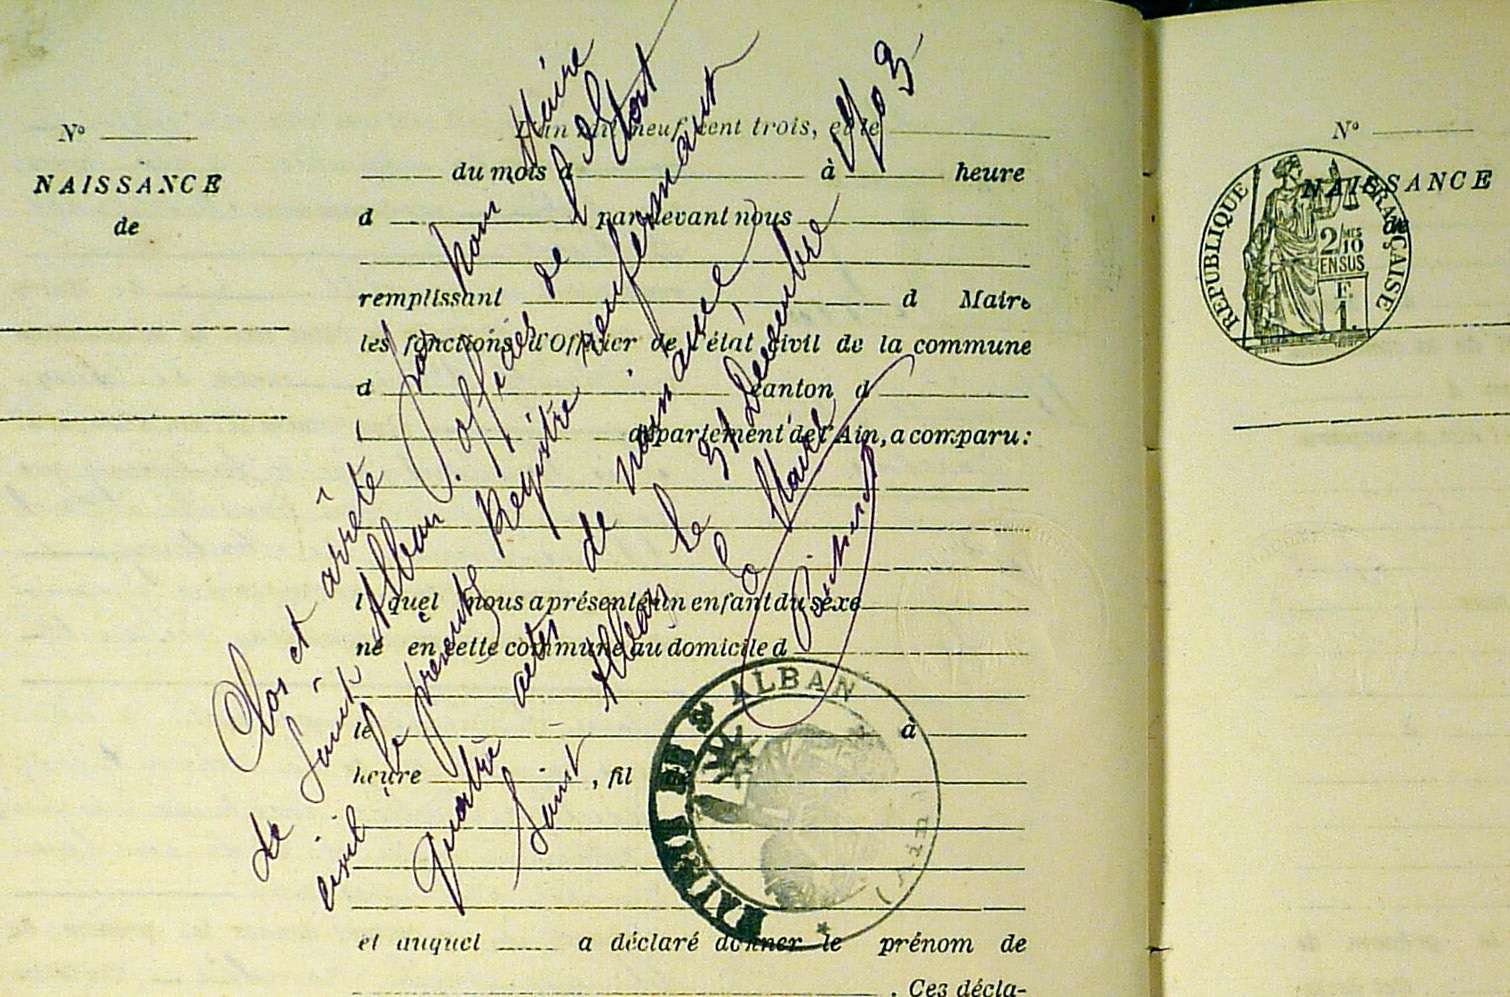 N°
NAISSANCE
de
L'an mil neuf cent trois, et le
du mois d à heure
d par devant nous
remplissant d Maire
les fonctions d'Officier de l'état civil de la commune
d canton d
département de l'Ain, a comparu:
l quel nous a présenté un enfant du sexe
né en cette commune au domicile d
le à
heure , fil
et auquel a déclaré donner le prénom de
. Ces décla-
Clos et arrêté par nous Maire
de Saint Alban, officier de l'Etat
civil le présent Registre renfermant
quatre actes de naissance
Saint Alban le 31 Décembre 1903
Le Maire
MAIRIE DE ST ALBAN
(Ain)
N°
NAISSANCE
de
RÉPUBLIQUE FRANÇAISE
2/10
EN SUS
F.
1.